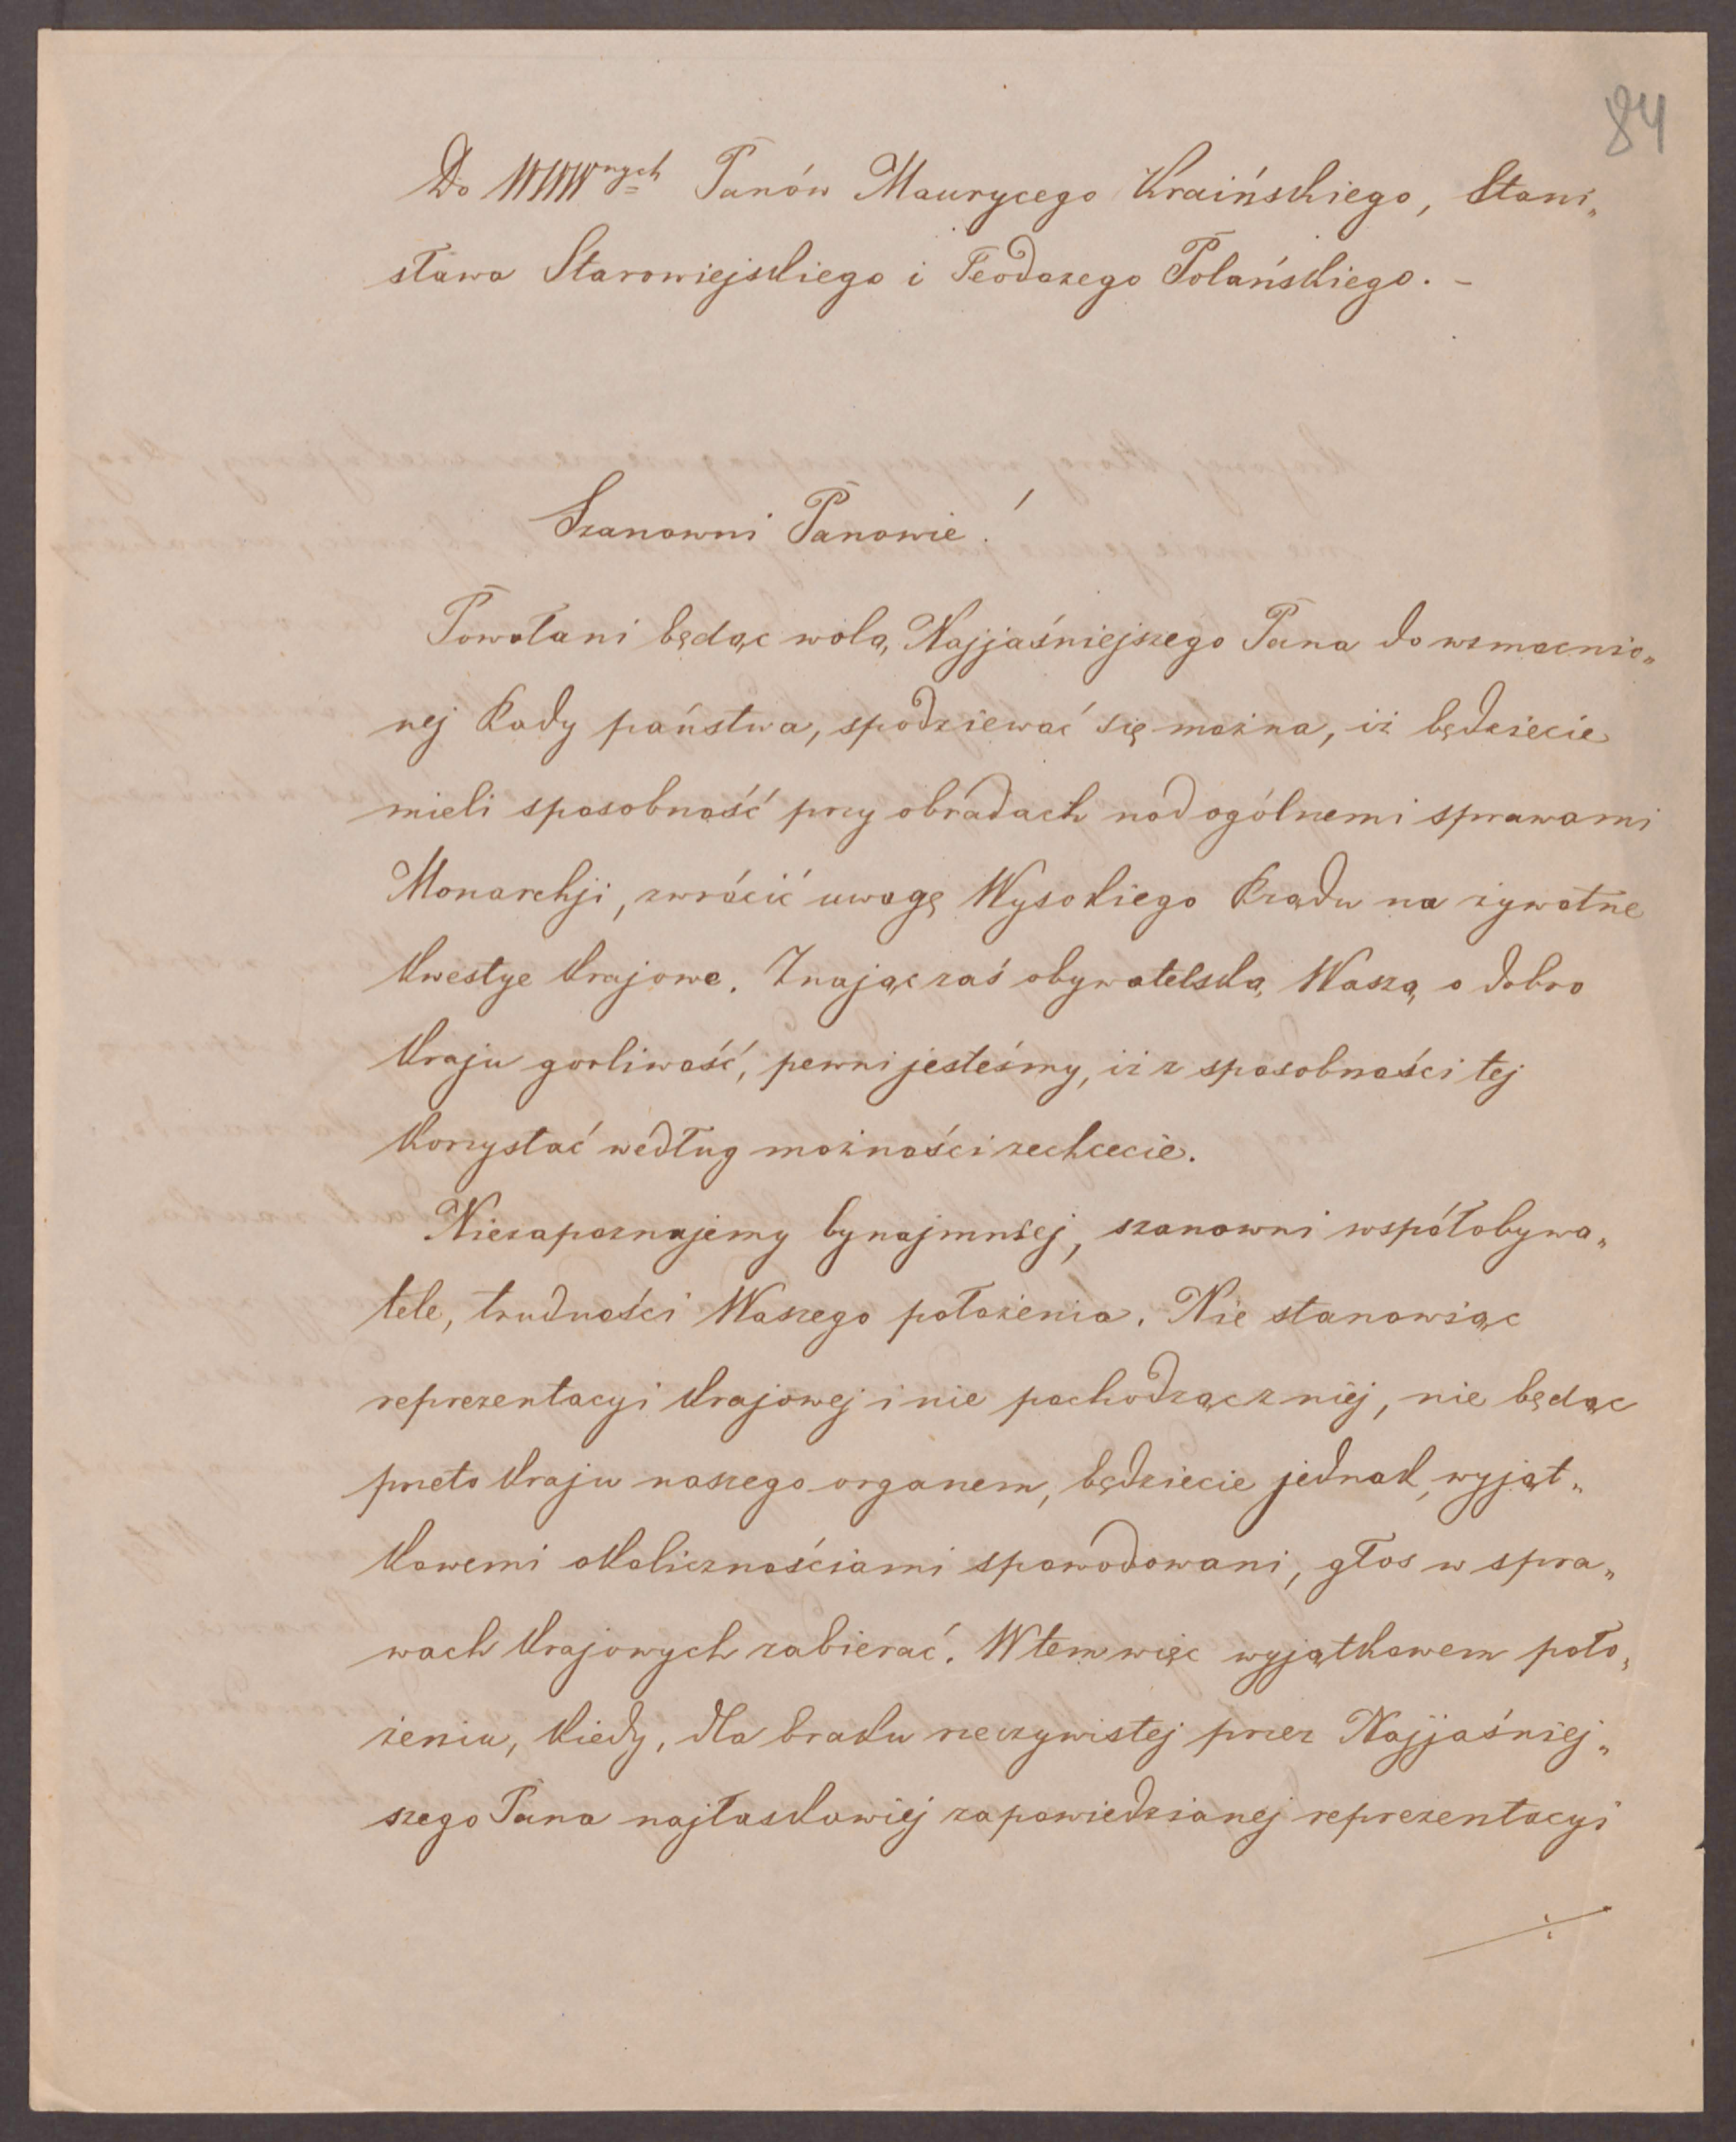 84
Do WWWnych Panów Maurycego Kraińskiego, Stani„
sława Starowiejskiego i Teodozego Polańskiego. –
Szanowni Panowie!
Powołani będąc wolą Najjaśniejszego Pana do wzmocnio„
nej Rady państwa, spodziewać się można, iż będziecie
mieli sposobność przy obradach nad ogólnemi sprawami
Monarchji, zwrócić uwagę Wysokiego Rządu na żywotne
kwestye krajowe. Znając zaś obywatelską Waszą o dobro
kraju gorliwość, pewni jesteśmy, iż z sposobności tej
korzystać według możności zechcecie.
Niezapoznajemy bynajmniej, szanowni współobywa„
tele, trudności Waszego położenia. Nie stanowiąc
reprezentacyi krajowej i nie pochodząc z niej, nie będąc
przeto kraju naszego organem, będziecie jednak, wyjąt„
kowemi okolicznościami spowodowani, głos w spra„
wach krajowych zabierać. W tem więc wyjątkowem poło„
żeniu, kiedy, dla braku rzeczywistej przez Najjaśniej„
szego Pana najłaskowiej zapowiedzianej reprezentacyi